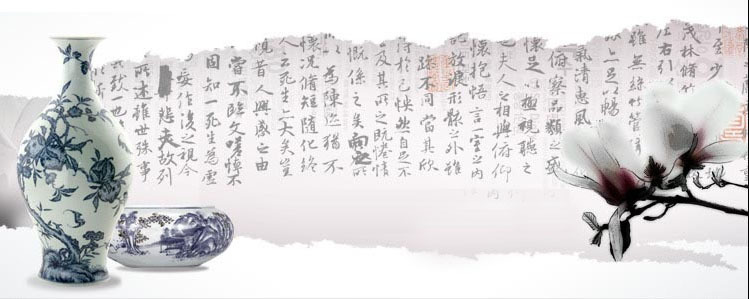 至少
茂林脩竹
左右引
雖無絲竹管弦
亦足以暢
氣清惠風
俯察品類之盛
懷足以極視聽之
夫人之相與俯仰
懷抱悟言一室之內
放浪形骸之外雖
殊不同當其欣
得於己怏然自足不
及其所之既惓情
慨係之矣向之所
為陳迹猶不
懷況脩短隨化終
人云死生亦大矣豈
昔人興感之由
嘗不臨文嗟悼不
固知一死生為虛
妄作後之視今
悲夫故列
所述雖世殊事
致一也